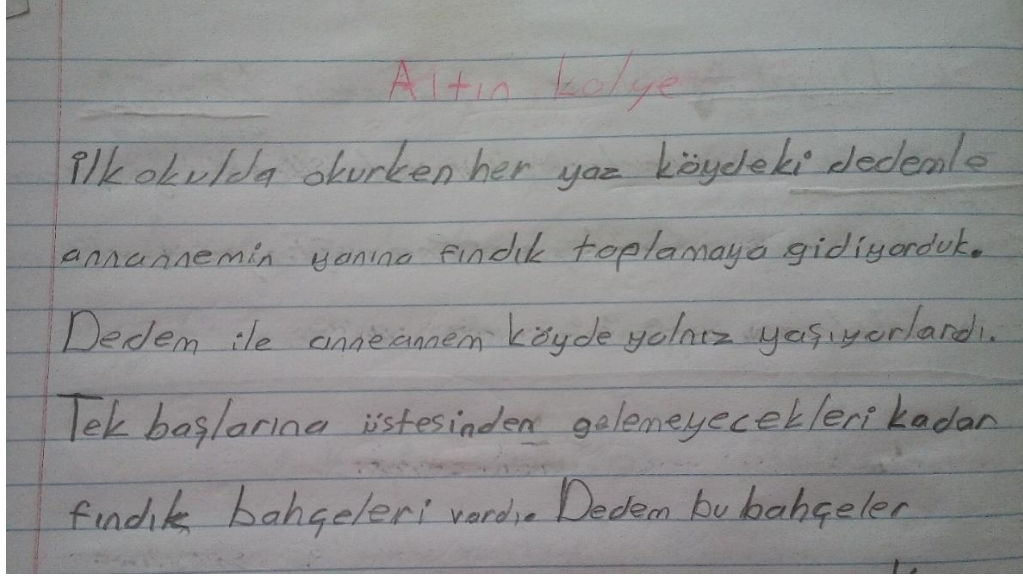 Altın kolye
ilk okulda okurken her yaz köydeki dedemle
annannemin yanına fındık toplamaya gidiyorduk.
Dedem ile anneannem köyde yalnız yaşıyorlardı.
Tek başlarına üstesinden gelemeyecekleri kadar
fındık bahçeleri vardı. Dedem bu bahçeler